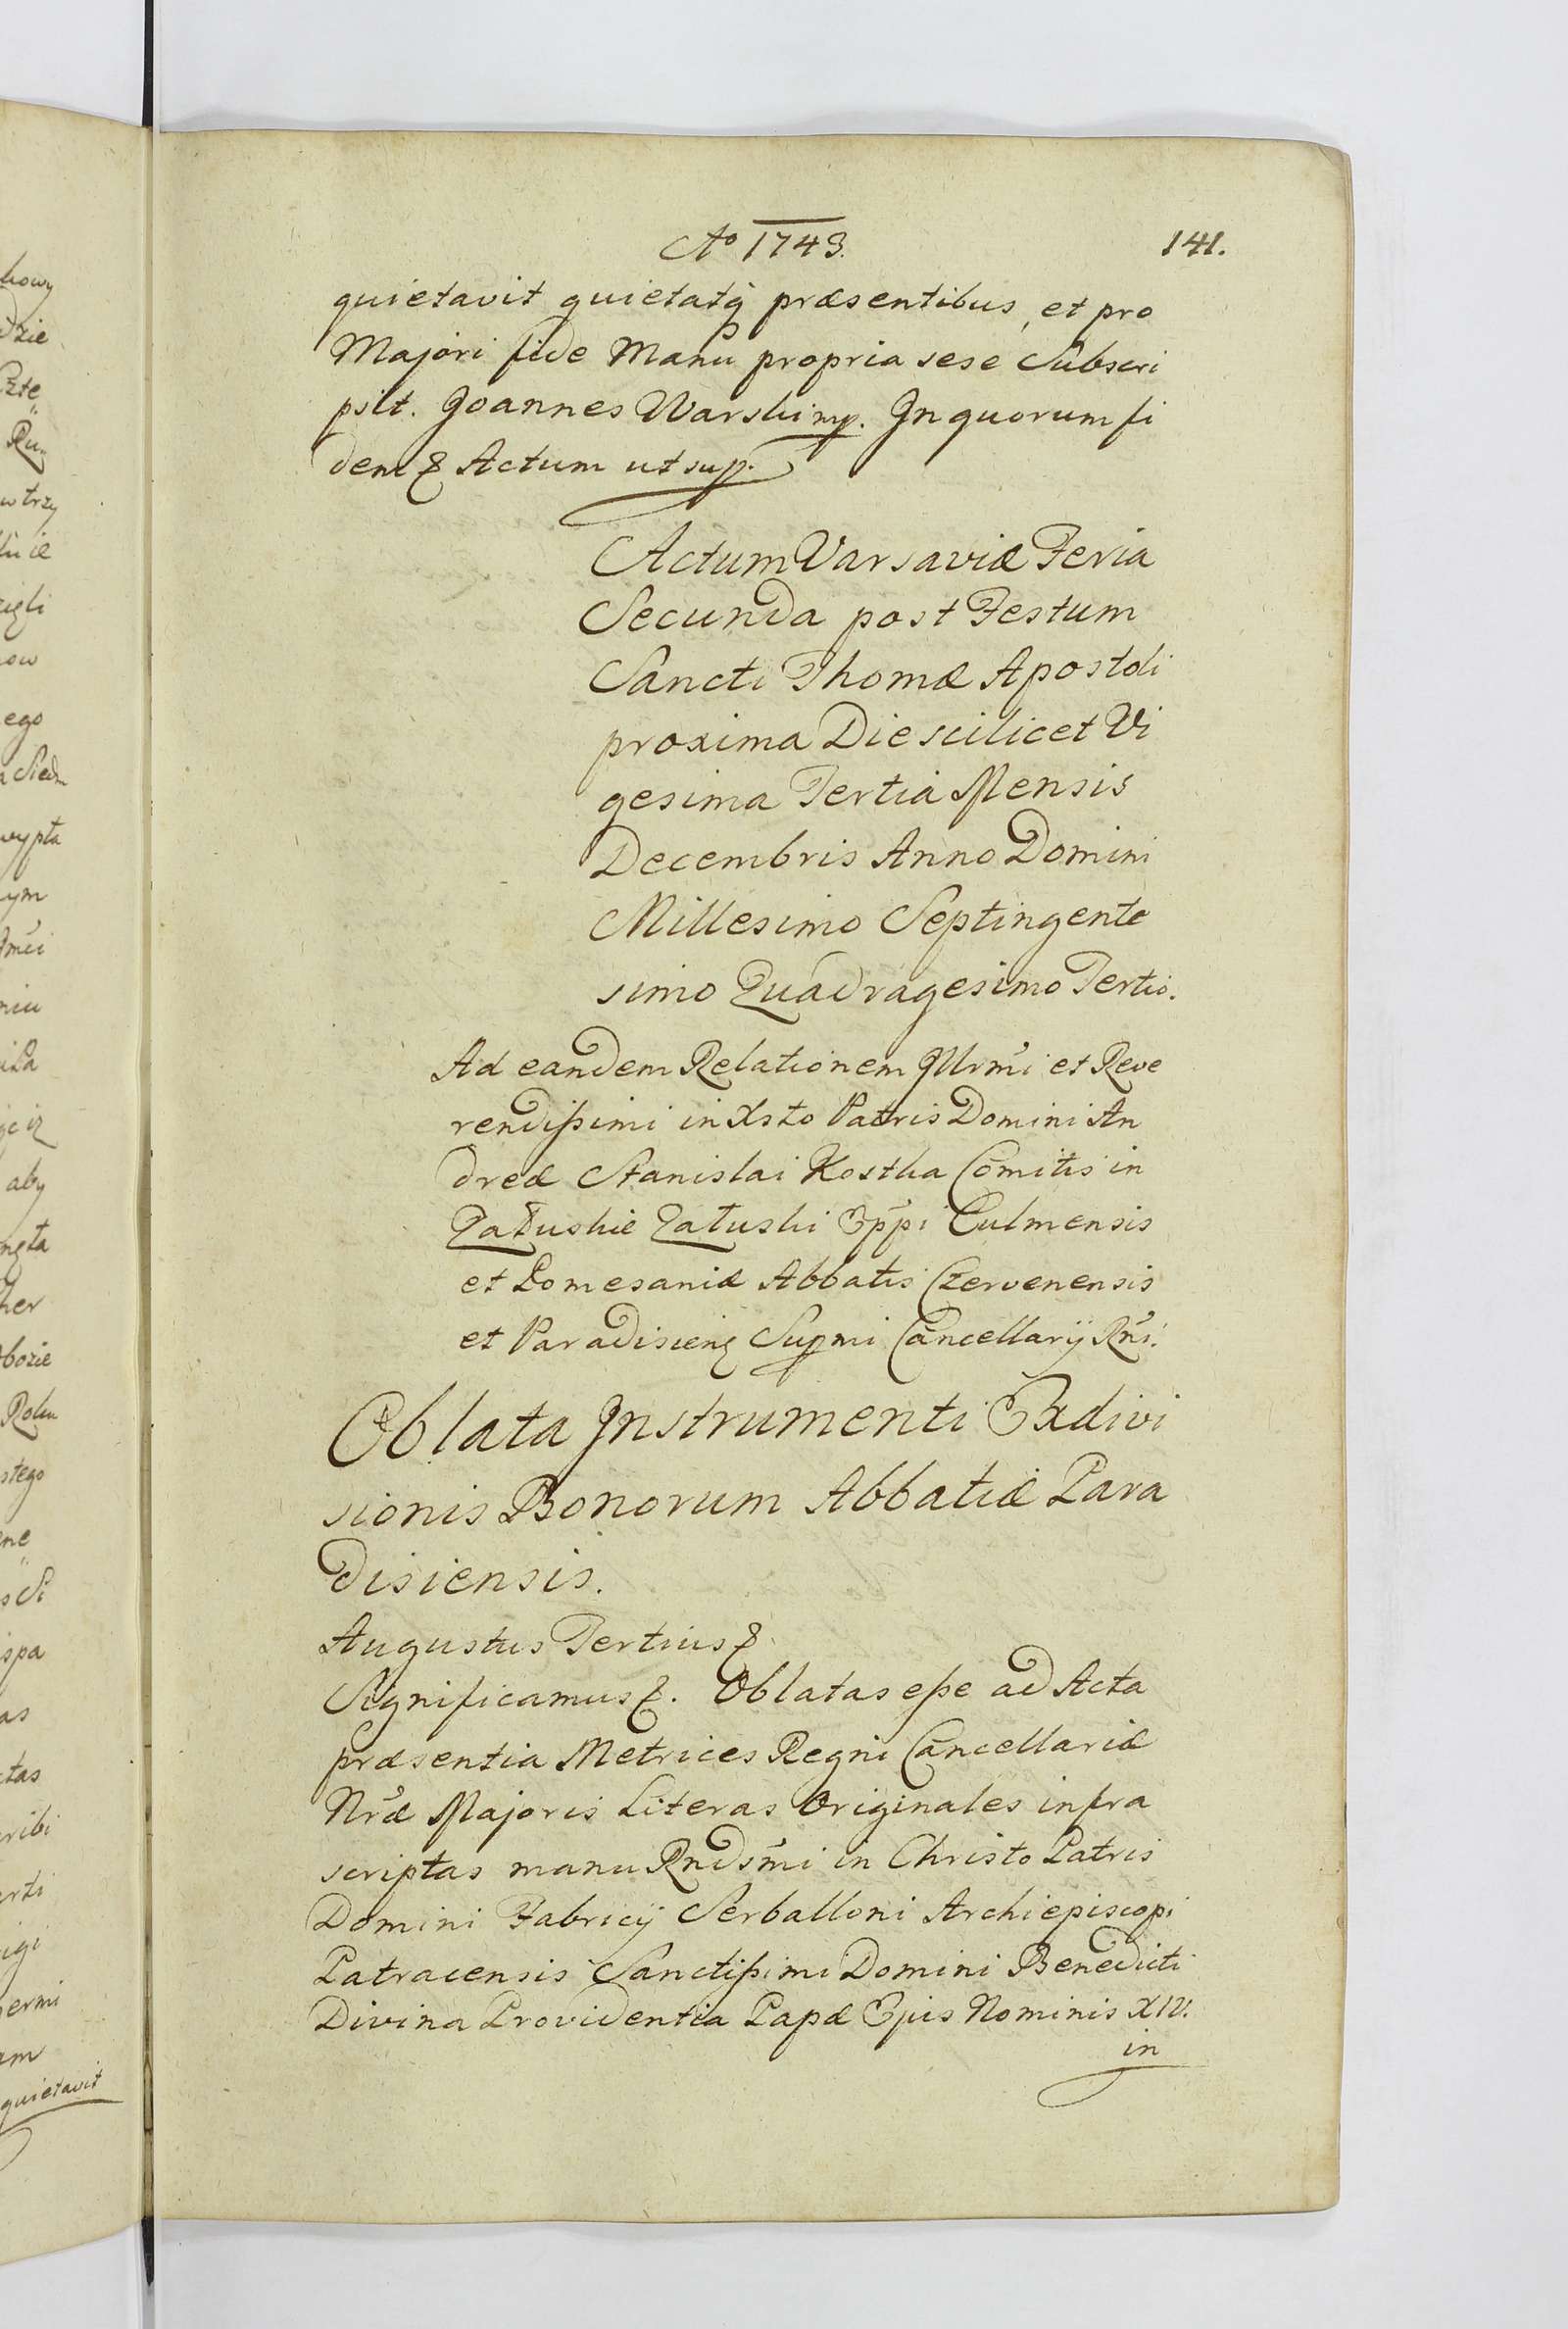 Ao 1743. 141.
quietavit quietatq præsentibus, et pro
Majori fide Manu propria sese Subscri
psit. Joannes Warski mp. In quorum fi
dem & Actum ut sup.
Actum Varsaviæ Feria
Secunda post Festum
Sancti Thomæ Apostoli
proxima Die scilicet Vi
gesima Tertia Mensis
Decembris Anno Domini
Millesimo Septingente
simo Quadragesimo Tertio.
Ad eandem Relationem Illrmi et Reve
rendissimi in Xsto Patris Domini An
dreæ Stanislai Kostka Comitis in
Załuskie Załuski Eppi Culmensis
et Pomesaniæ Abbatis Czervenensis
et Paradisien Supmi Cancellarij Rni.
Oblata Instrumenti Exdivi
sionis Bonorum Abbatiæ Para
disiensis.
Augustus Tertius &.
Significamus &. Oblatas esse ad Acta
præsentia Metrices Regni Cancellariæ
Nræ Majoris Literas Originales infra
scriptas manu Rndsmi in Christo Patris
Domini Fabricij Serballoni Archiepiscopi
Patracensis Sanctissimi Domini Benedicti
Divina Providentia Papæ Ejus Nominis XIV.
in
howy
dzie
ego
wypta
ym
aby
her
bozie
stego
ispa
as
ctas
cribi
igi
ermi
am
quietavit